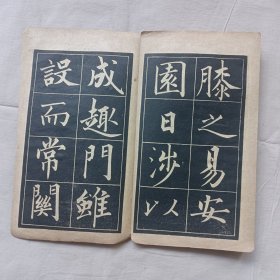 膝之易安
園日涉以
成趣門雖
設而常關